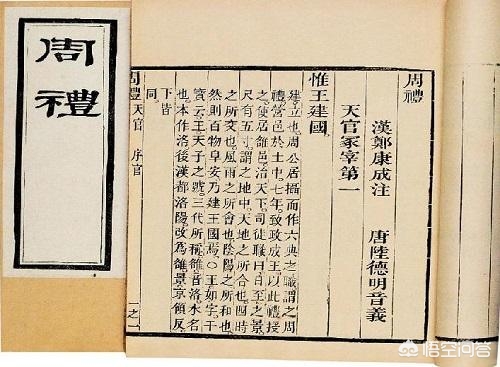 周禮
周禮
漢鄭康成注 唐陸德明音義
天官冢宰第一
惟王建國。
建立也。周公居攝而作六典之職。謂之周
禮。營邑於土中。七年致政成王。以此禮授
之。使居雒邑治天下。司徒職曰。日至之景。
尺有五寸。謂之地中。天地之所合也。四時
之所交也。風雨之所會也。陰陽之所和也。
然則百物阜安。乃建王國焉。○王如字。干
寶云。王天子之號。三代所稱。雒音洛。水名
也。本作洛。後漢都洛陽。改為雒。景京領反。
下皆
同。
周禮 天官 序官 一之一
悟空问答